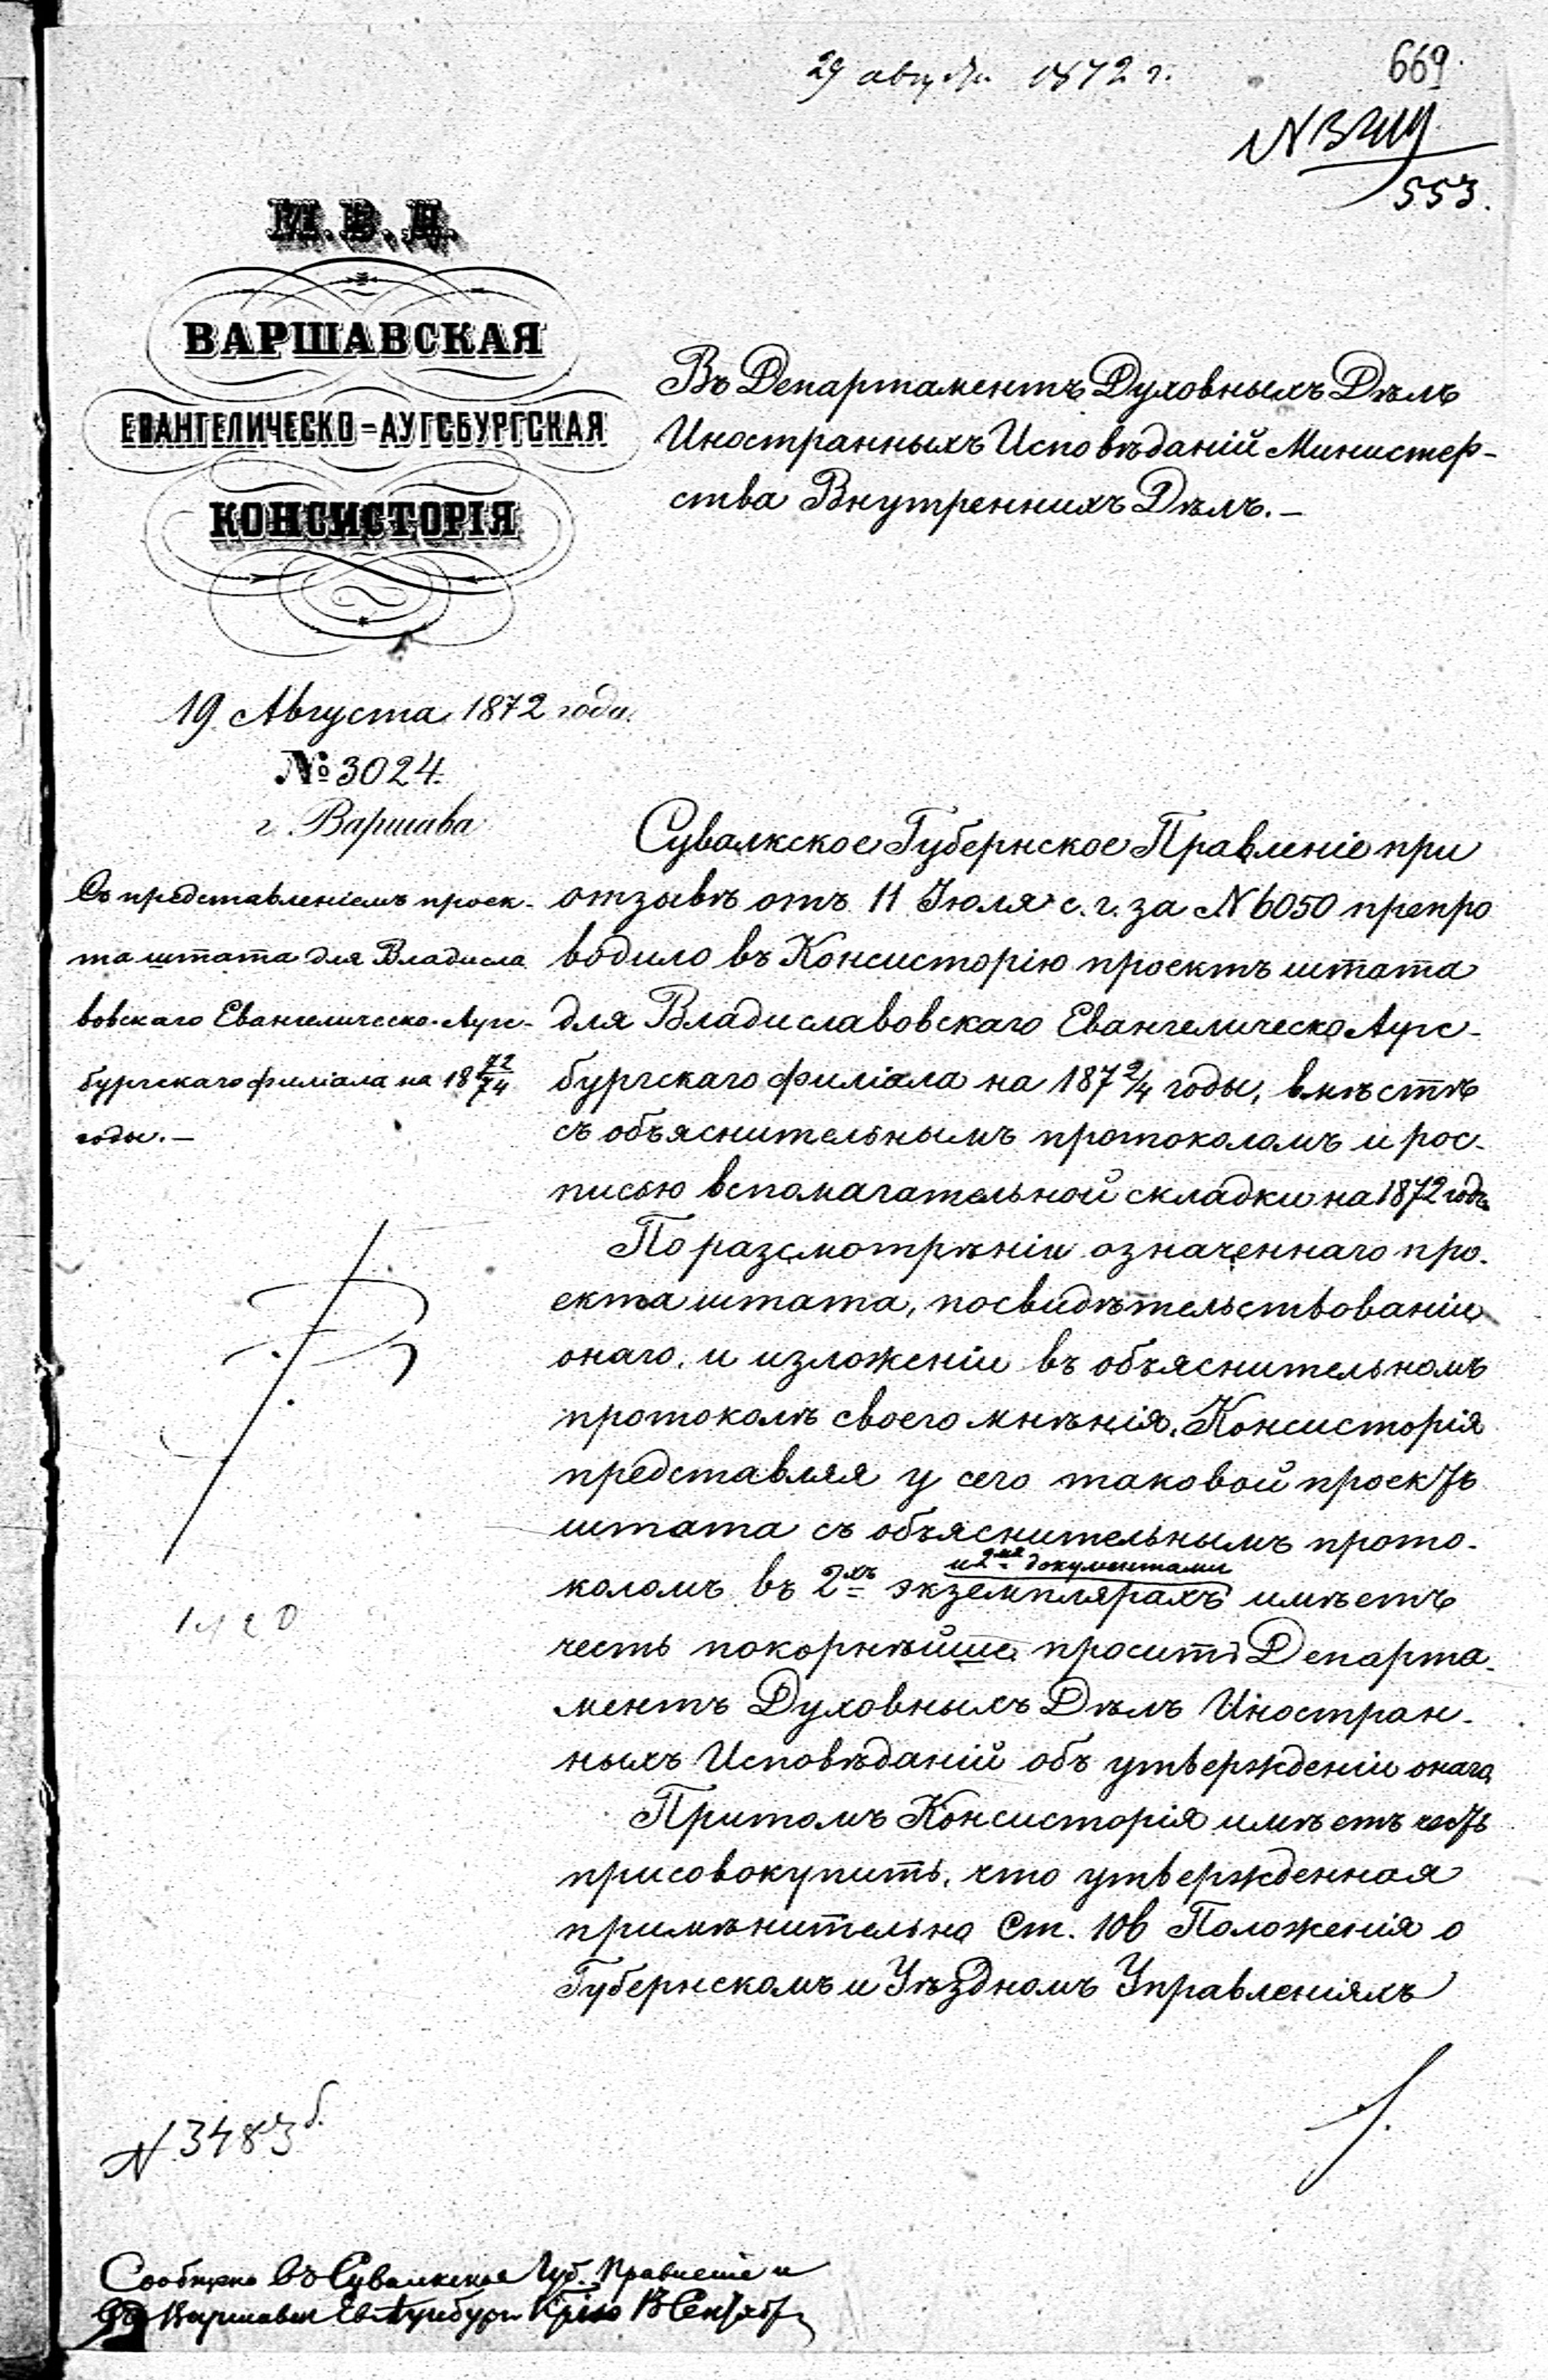 29 августа 1872 г.
669.
553.
М. В. Д.
ВАРШАВСКАЯ
ЕВАНГЕЛИЧЕСКО-АУГСБУРГСКАЯ
КОНСИСТОРІЯ
19 Августа 1872 года.
№ 3024.
г. Варшава
Съ представленіемъ проек-
та штата для Владисла
вовскаго Евангелическо-Аугс-
бургскаго филіала на 18 72/74
годы.-
Въ Департаментъ Духовныхъ Дѣлъ
Иностранныхъ Исповѣданій Министер-
ства Внутреннихъ Дѣлъ.-
Сувалкское Губернское Правленіе при
отзывѣ отъ 11 Іюля с. г. за N 6050 препро
водило въ Консисторію проектъ штата
для Владиславовскаго Евангелическо Аугс-
бургскаго филіала на 187 2/4 годы, вмѣстѣ
съ объяснительнымъ протоколомъ и рос-
писью вспомагательной складки на 1872 годъ
По разсмотрѣніи означеннаго про-
екта штата, посвидѣтельствованіи
онаго и изложеніи въ объяснительномъ
протоколѣ своего мнѣнія, Консисторія
представляя у сего таковой проектъ
штата съ объяснительнымъ прото-
и 2мя документами
коломъ въ 2хъ экземплярахъ имѣетъ
честь покорнѣйше просить Департа-
ментъ Духовныхъ Дѣлъ Иностран-
ныхъ Исповѣданій объ утвержденіи онаго
Притомъ Консисторія имѣетъ честь
присовокупить, что утвержденная
примѣнительно Ст. 10в Положенія о
Губернскомъ и Уѣздномъ Управленіяхъ
N 3483 б.
Сообщено въ Сувалкское Губ. Правленіе и
Варшавск Ев Аугсбург К-рію Сентября